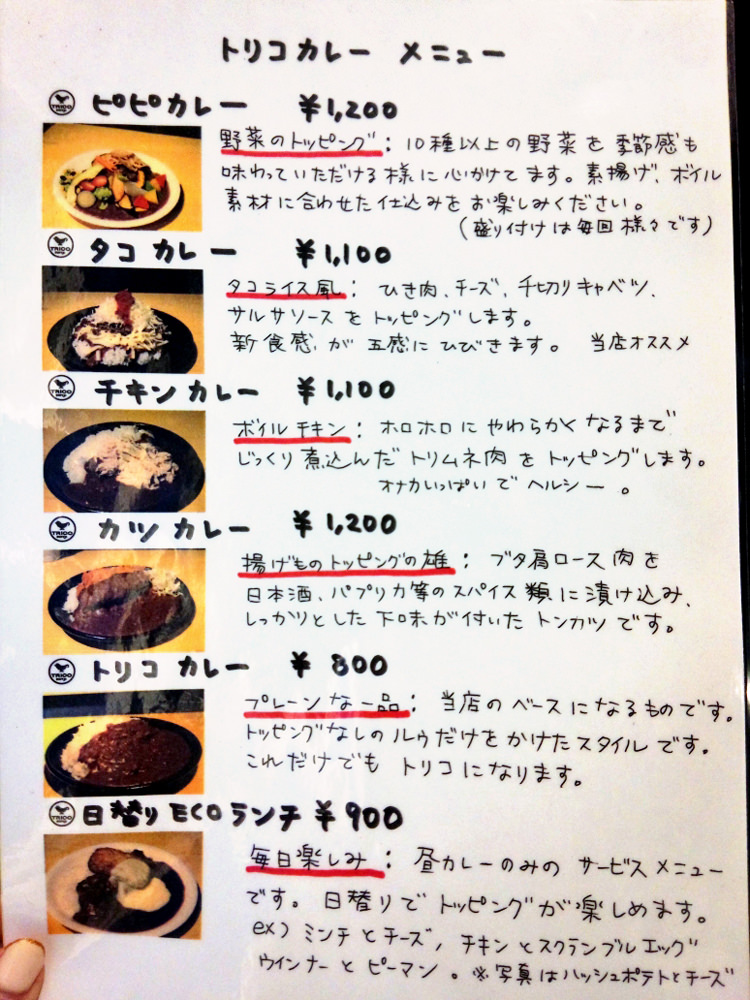 トリコカレー メニュー
ピピカレー ¥1,200
野菜のトッピング：10種以上の野菜を季節感も
味わっていただける様に心がけてます。素揚げ、ボイル
素材に合わせた仕込みをお楽しみください。
（盛り付けは毎回様々です）
タコカレー ¥1,100
タコライス風：ひき肉、チーズ、千切りキャベツ、
サルサソースをトッピングします。
新食感が五感にひびきます。 当店オススメ
チキンカレー ¥1,100
ボイルチキン：ホロホロにやわらかくなるまで
じっくり煮込んだトリムネ肉をトッピングします。
オナカいっぱいでヘルシー。
カツカレー ¥1,200
揚げものトッピングの雄：ブタ肩ロース肉を
日本酒、パプリカ等のスパイス類に漬け込み、
しっかりとした下味が付いたトンカツです。
トリコカレー ¥800
プレーンな一品：当店のベースになるものです。
トッピングなしのルゥだけをかけたスタイルです。
これだけでもトリコになります。
日替りECOランチ ¥900
毎日楽しみ：昼カレーのみのサービスメニュー
です。日替りでトッピングが楽しめます。
ex) ミンチとチーズ、チキンとスクランブルエッグ
ウインナーとピーマン。※写真はハッシュポテトとチーズ